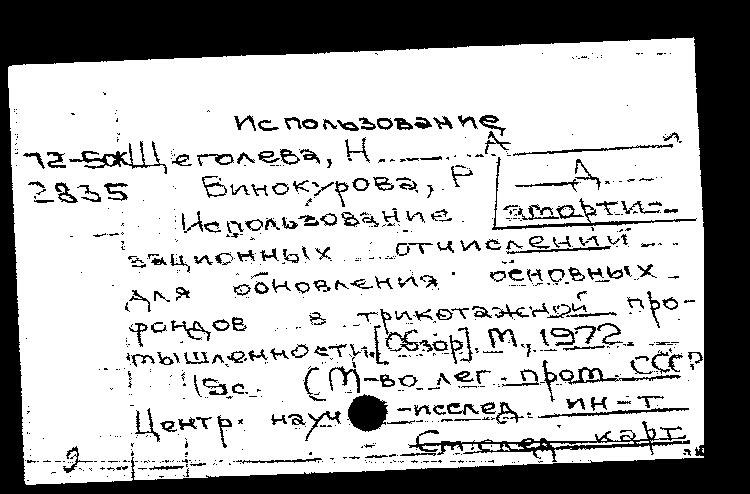 Использование
72-5ок Щеголева, Н. А. и
2835 Винокурова, Р. Д.
Использование аморти-
зационных отчислений
для обновления основных
фондов в трикотажной про-
мышленности. [Обзор]. М., 1972.
18с. (М-во лег. пром. СССР
Центр. науч -исслед. ин-т
См. след. карт.